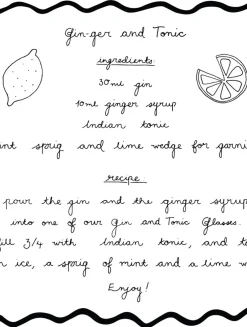 Gin-ger and Tonic
ingredients:
30ml gin
10ml ginger syrup
Indian tonic
sprig and lime wedge for
recipe:
pour the gin and the ginger syrup
into one of our Gin and Tonic Glasses.
3/4 with Indian tonic, and
ice, a sprig of mint and a lime
Enjoy!